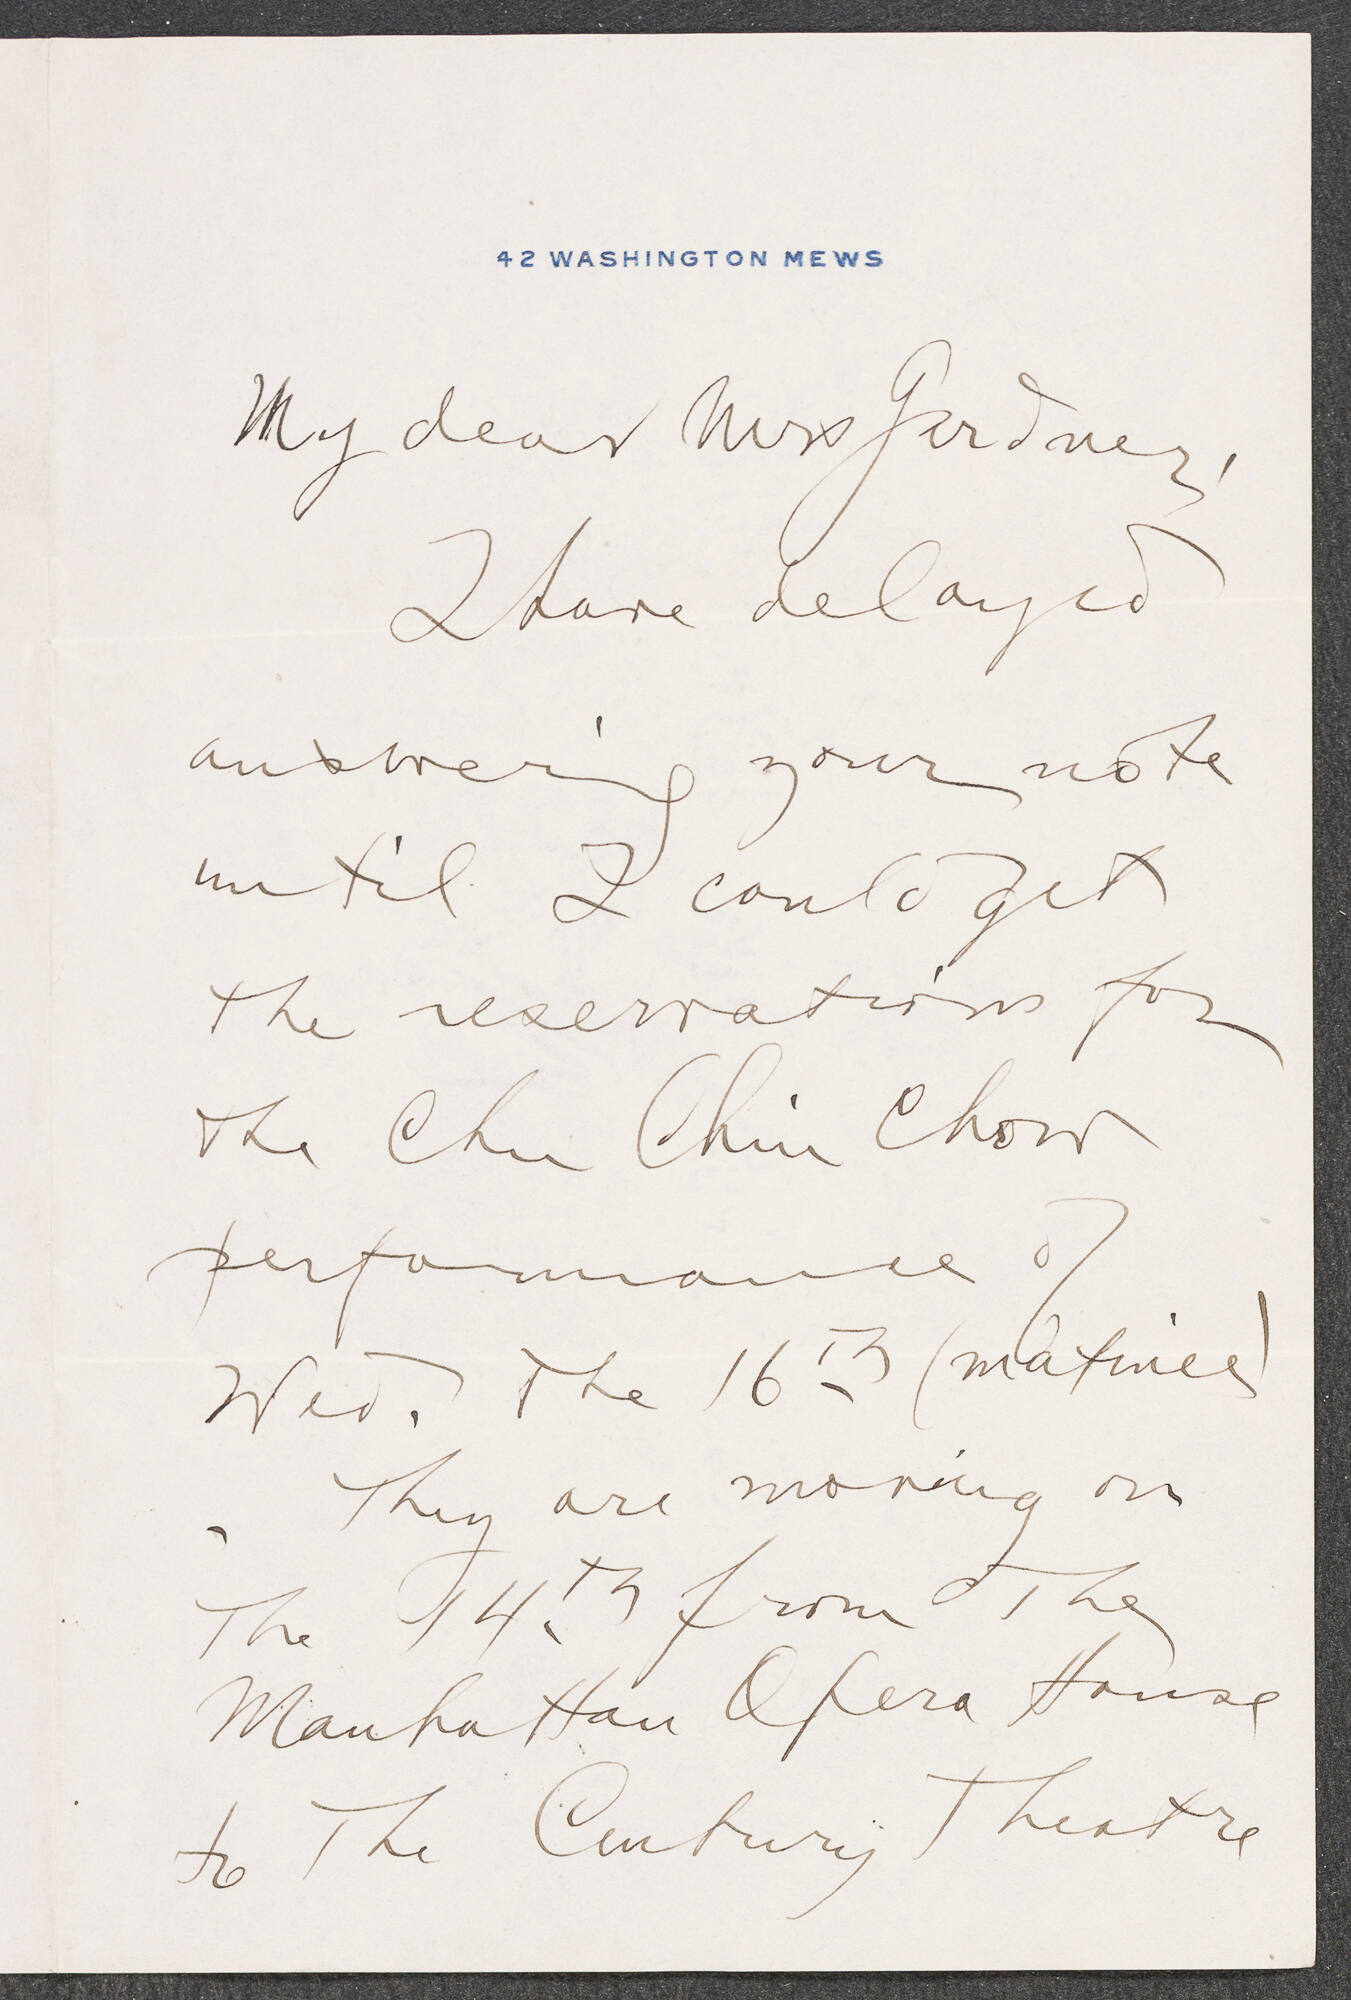 42 WASHINGTON MEWS
My dear Mrs Gardner,
I have delayed
answering your note
until I could get
the reservations for
the Chu Chin Chow
performance of
Wed. the 16th (matinee)
They are moving on
the 14th from the
Manhattan Opera House
to the Century Theatre